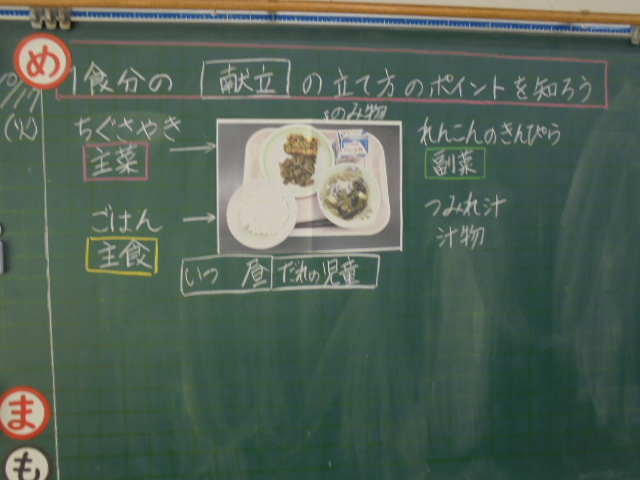 め
1食分の 献立 の立て方のポイントを知ろう
(火)
のみ物
ちぐさやき
主菜
れんこんのきんぴら
副菜
ごはん
主食
つみれ汁
汁物
いつ 昼 だれの 児童
ま
も